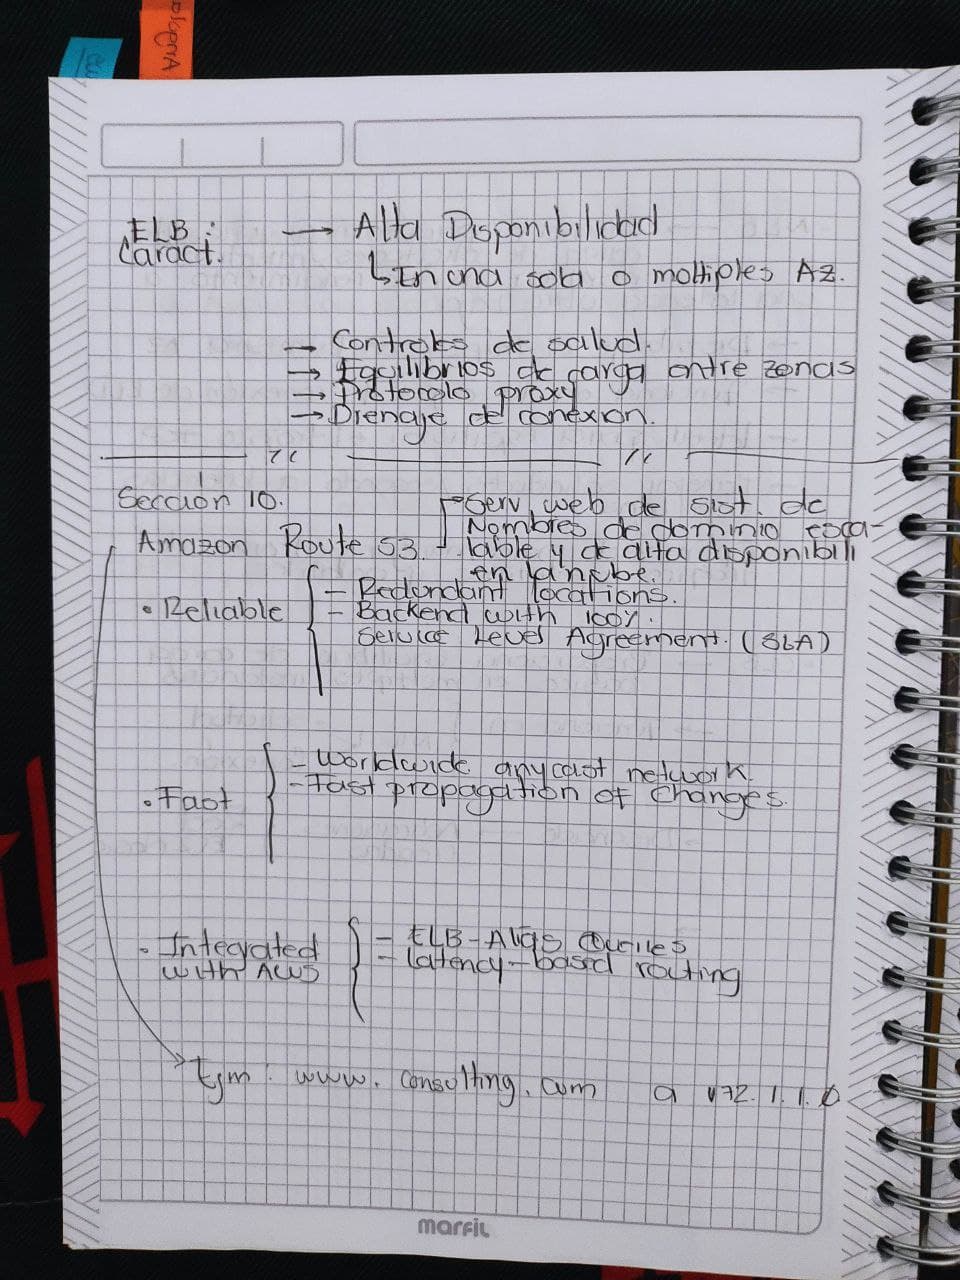 ELB :
Caract.
→ Alta Disponibilidad
↳ En una sola o multiples AZ.
→ Controles de salud.
→ Equilibrios de carga entre zonas
→ Protocolo proxy
→ Drenaje de conexion.
Sección 10.
Amazon Route 53.
Serv web de sist. de
Nombres de dominio esca-
lable y de alta disponibili
en la nube.
• Reliable
- Redundant locations.
- Backend with 100%.
Service Level Agreement. (SLA)
• Fast
- Worldwide anycast network.
- Fast propagation of changes.
• Integrated
with AWS
- ELB-Alias Queries
- Latency-based routing
Ejm : www. consulting. com a 172.1.1.0
marfil